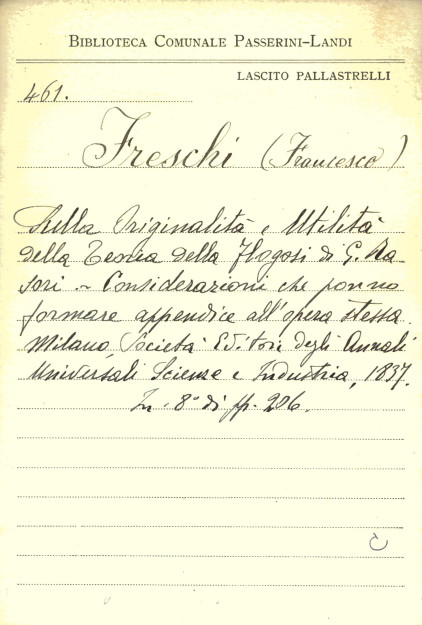 BIBLIOTECA COMUNALE PASSERINI-LANDI
LASCITO PALLASTRELLI
461.
Freschi (Francesco)
Sulla Originalità e Utilità
della Teoria della Flogosi di G. Ra-
sori. - Considerazioni che ponno
formare appendice all'opera stessa.
Milano, Società Editori degli Annali
Universali Scienze e Industria, 1837.
In - 8° di pp. 206.